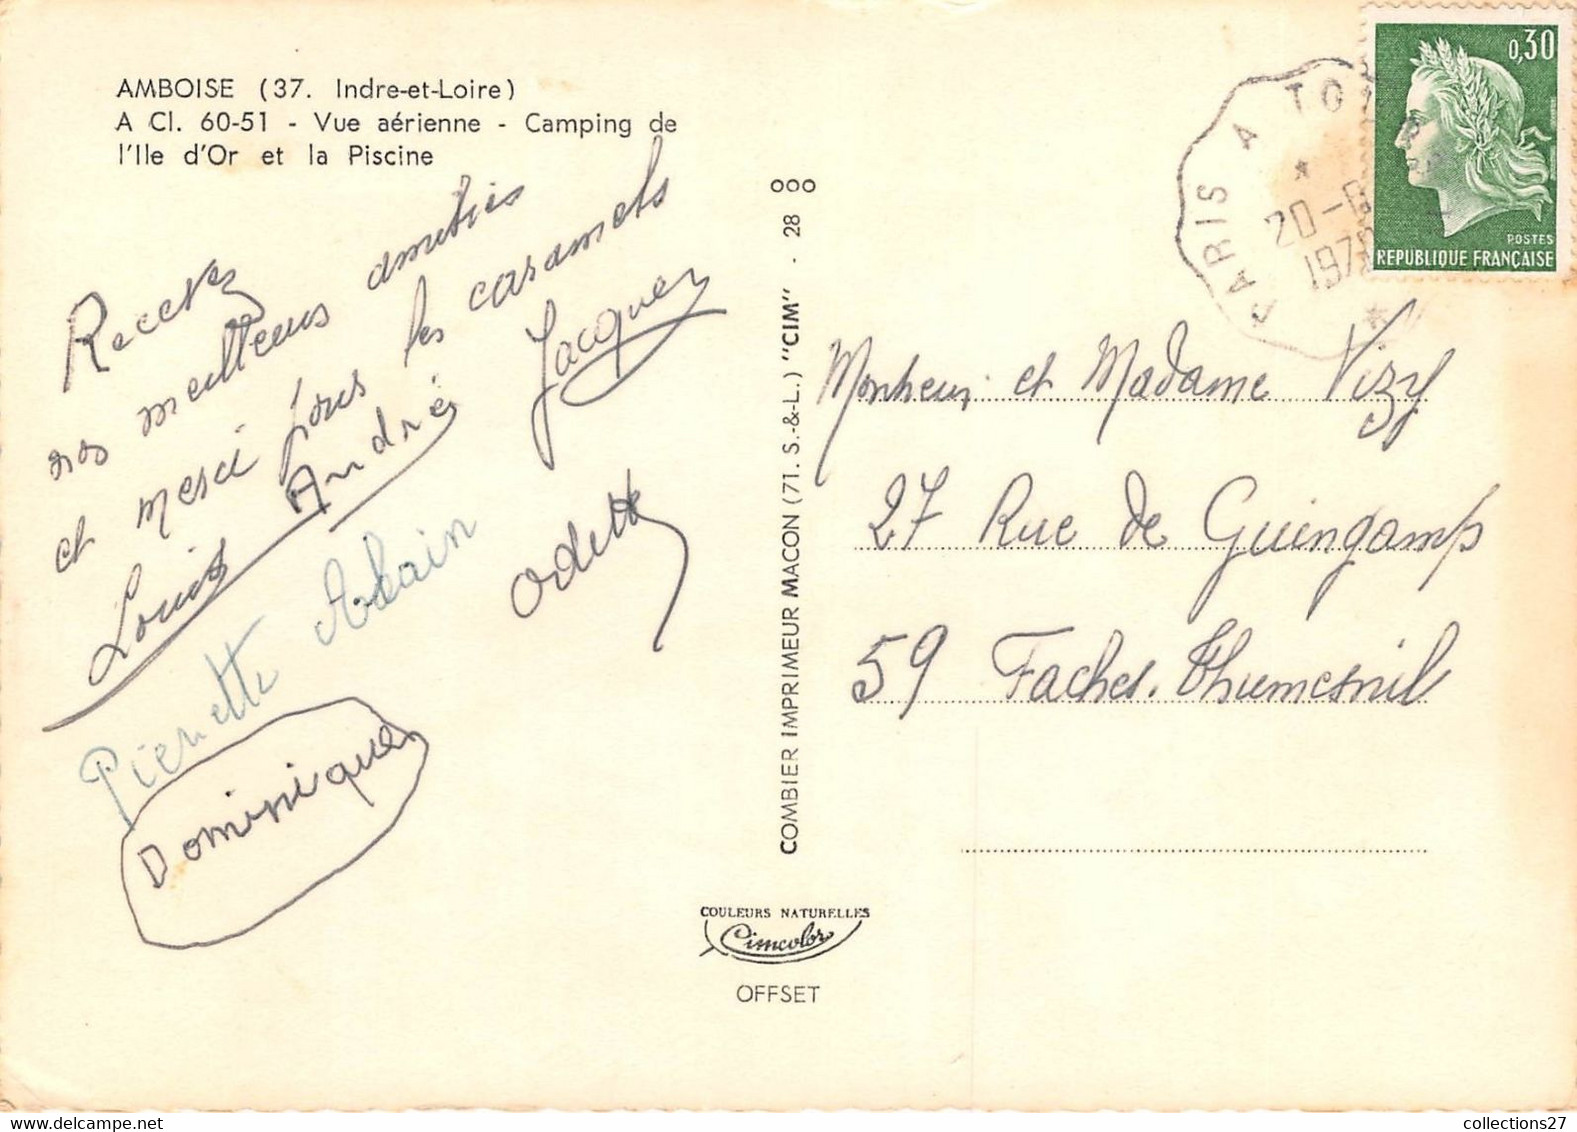 AMBOISE (37. Indre-et-Loire)
A Cl. 60-51 - Vue aérienne - Camping de
l'Ile d'Or et la Piscine
Recevez
nos meilleurs amitiés
et merci pour les caramels
Louis André Jacques
Pierrette Alain Odette
Dominique
COMBIER IMPRIMEUR MACON (71. S.-&-L.) "CIM" - 28 ooo
COULEURS NATURELLES
Cimcolor
OFFSET
0,30
POSTES
REPUBLIQUE FRANÇAISE
PARIS A TO
20-6
1970
Monsieur et Madame Vizy
27 Rue de Guingamp
59 Faches. Thumesnil
collections27